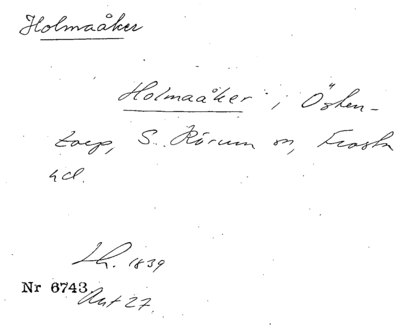 Holmaåker
Holmaåker i Ösken-
torp, S. Rörum sn, Frosta
hd.
Lh. 1839
Nr 6743
Akt 27.